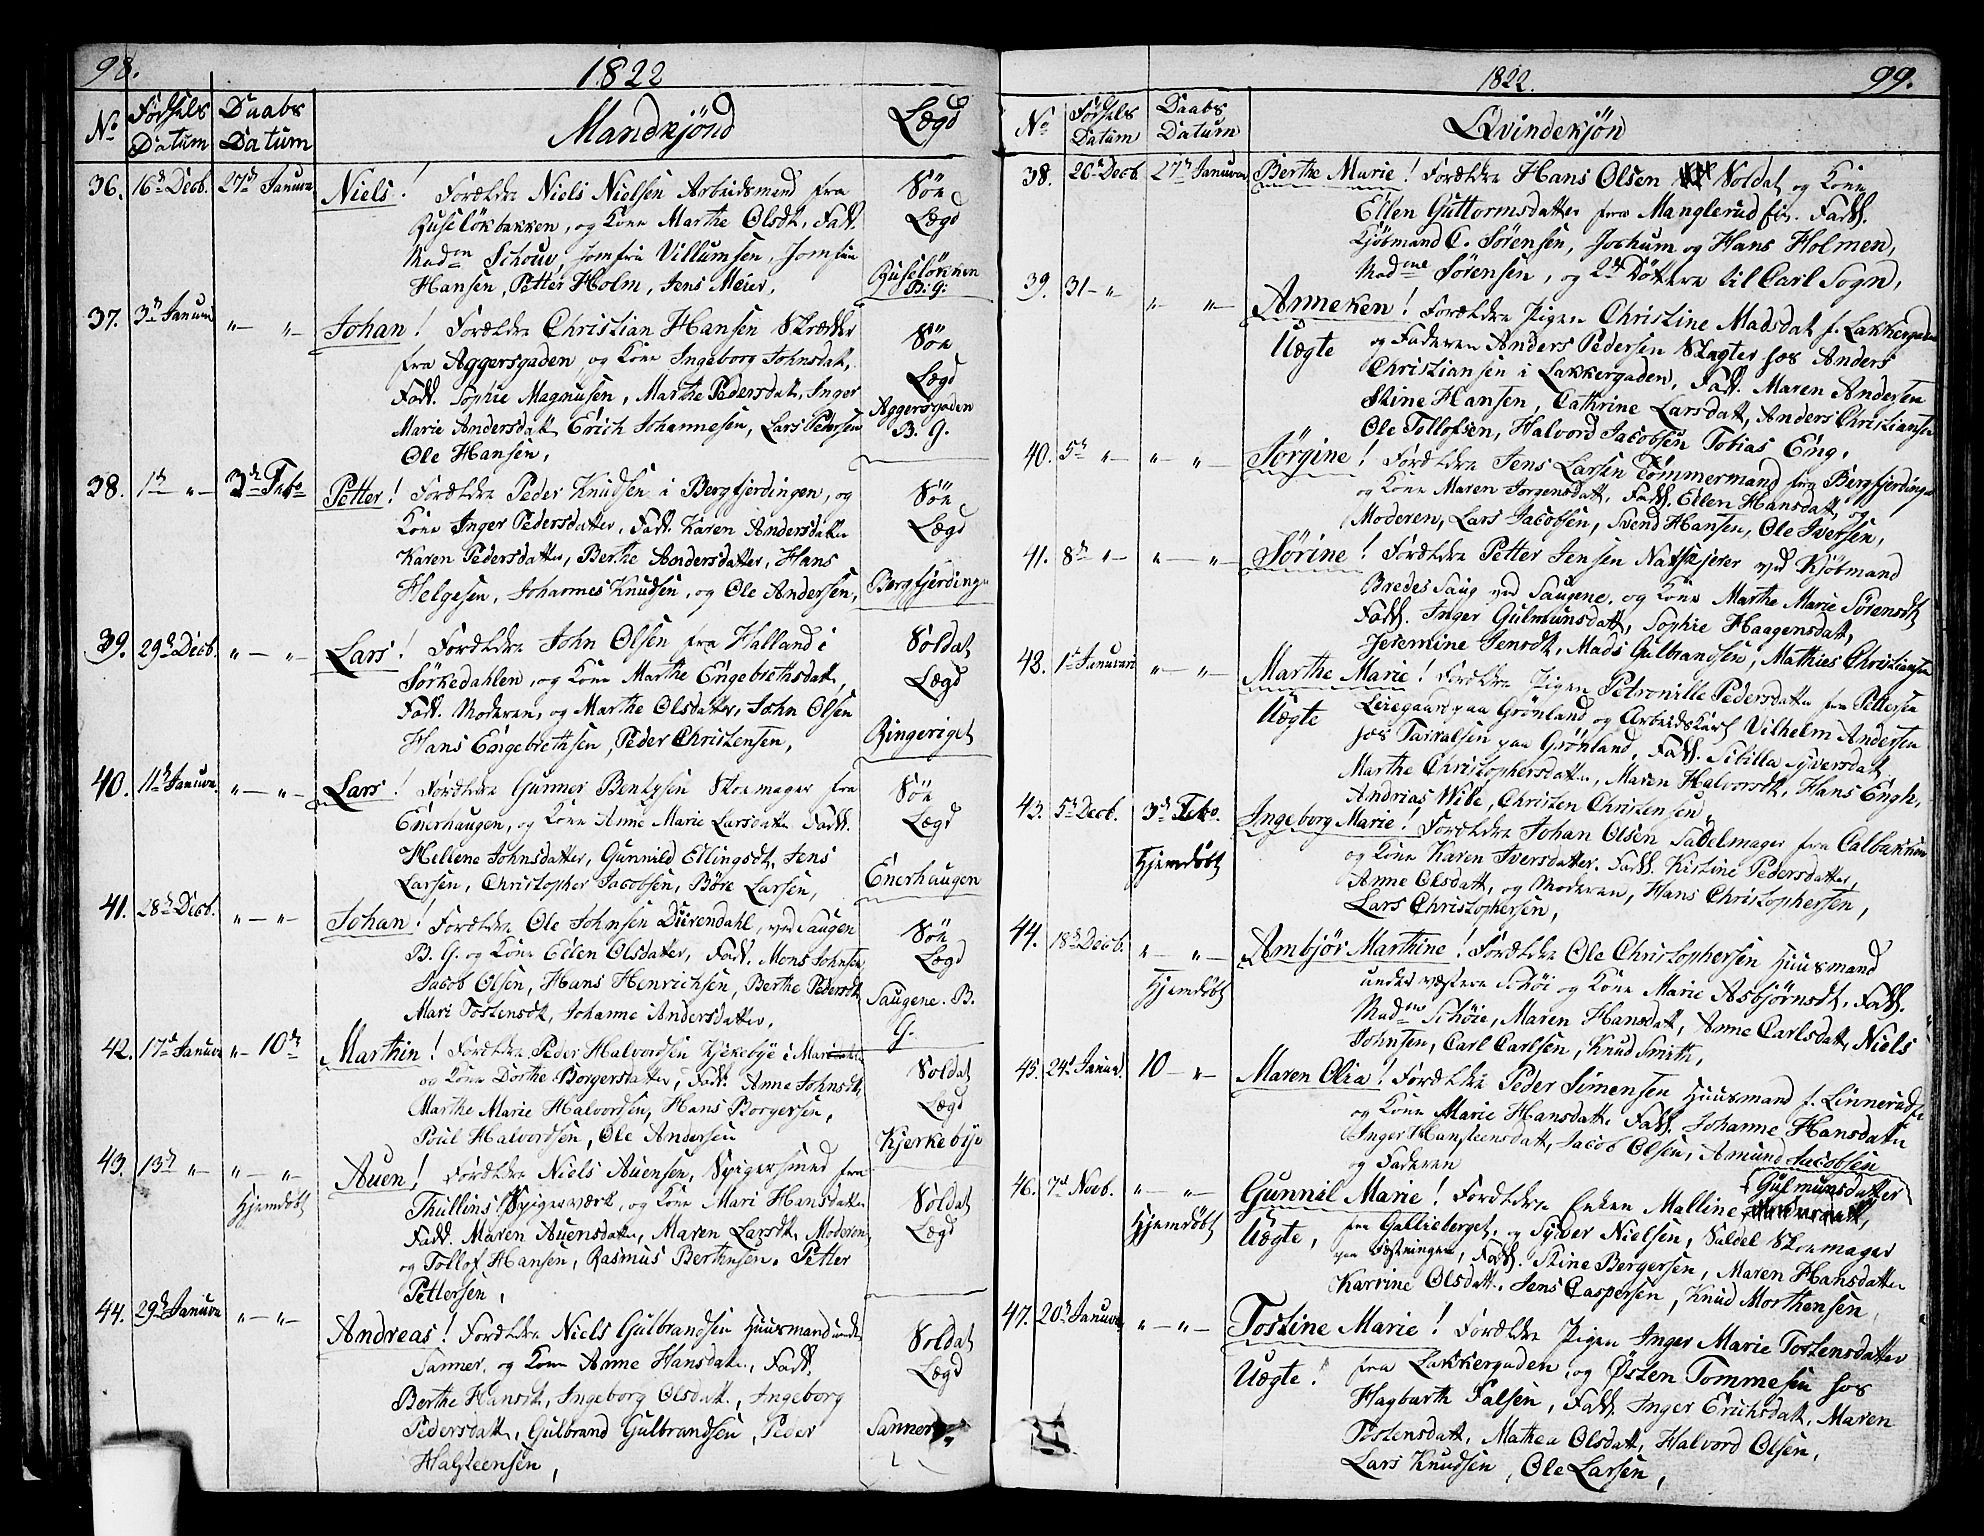 98.
1822
No
Førsels Datum
Daabs Datum
Mandkjönd
Lægd
36. 16de Decb. 27de Januar Niels! Forældre Niels Nielsen Arbeidsmand fra
Ruselökbakken, og Kone Marthe Olsdt. Fadd.
Madm Schouv, Jomfru Villumsen, Jomfru
Hansen, Petter Holm, Jens Meier,
Søn
Lægd
Ruselökken
B: G:
37. 3de Januar " — " Johan! Forældre Christian Hansen Skrædder
fra Aggersgaden, og Kone Ingeborg Johnsdatt,
Fadd. Sophie Magnusen, Marthe Pedersdatt, Inger
Marie Andersdatt, Erich Johannesen, Lars Pedersen
Ole Hansen,
Søn
Lægd
Aggersgaden
B. G.
38. 1de " — 3de Febr Petter! Forældre Peder Knudsen i Bergfjerdingen, og
Kone Inger Pedersdatter, Fadd. Karen Andersdatter
Karen Pedersdatter, Berthe Andersdatter, Hans
Helgesen, Johannes Knudsen, og Ole Andersen,
Søn
Lægd
Bergfjerdingen
39. 29de Decb. " — " — Lars! Forældre John Olsen fra Halland i
Sørkedahlen, og Kone Marthe Engebrethsdatt,
Fadd. Moderen, og Marthe Olsdatter, John Olsen
Hans Engebrethsen, Peder Christensen,
Soldat
Lægd
Ringeriget
40. 11de Januar. " — " — Lars! Forældre Gunner Bentsen Skomager fra
Enerhaugen, og Kone Anne Marie Larsdatt. Fadd.
Hellene Johnsdatter, Gunnild Ellingsdt, Jens
Larsen, Christopher Jacobsen, Böre Larsen,
Søn
Lægd
Enerhaugen
41. 28de Decb. " — " Johan! Forældre Ole Johnsen Durendahl, ved Saugen
B. G. og Kone Ellen Olsdatter, Fadd. Mons Johnsen
Jacob Olsen, Hans Henrichsen, Berthe Pedersdt,
Mari Tostensdt, Johanne Andersdatter,
Søn
Lægd
Saugene. B.
G.
42. 17de Januar " — 10de Marthin! Forældre Peder Halvordsen Kjerkebye i
og Kone Dorthe Borgersdatter, Fadd. Anne Johnsdt,
Marthe Marie Halvordsen, Hans Borgersen,
Poul Halvordsen, Ole Andersen
Soldat
Lægd
Kjerkebye
43. 13de " " — " Auen! Forældre Niels Auensen, Spigersmed fra
Hjemdöbt
Thullins Spigerværk, og Kone Mari Hansdatter
Fadd. Maren Auensdatter, Maren Larsdt, Moderen,
og Tollof Hansen, Rasmus Berthensen, Petter
Pettersen,
Soldat
Lægd
44. 29de Januar " — " Andreas! Forældre Niels Gulbrandsen Huusmand under
Sanner, og Kone Anne Hansdatter, Fadd.
Berthe Hansdt, Ingeborg Olsdatt, Ingeborg
Pedersdatt, Gulbrand Gulbrandsen, Peder
Halsteensen,
Soldat
Lægd
Sanner
1822.
99.
No
Førsels Datum
Daabs Datum
Qvindekjön
38. 26de Decb. 27de Januar Berthe Marie! Forældre Hans Olsen Soldat og Kone
Ellen Guttormsdatter fra Manglerud Fadd.
Kjøbmand C. Sörensen, Jochum og Hans Holmen,
Madme Sörensen, og 2de Döttere til Carl Sogn,
39. 31 — " " — " — Anneken! Forældre Pigen Christine Madsdat f. Lakkergaden
Uægte
og Faderen Anders Pedersen Slagter hos Anders
Christiansen i Lakkergaden, Fadd. Maren Andersen
Stine Hansen, Cathrine Larsdatt, Anders Christiansen
Ole Tollofsen, Halvord Jacobsen Tobias Eng,
40. 5de " — " — " — Jørgine! Forældre Jens Larsen Tömmermand fra Bergfjerdingen
og Kone Maren Jorgensdatt, Fadd. Ellen Hansdatt, og
Moderen, Lars Jacobsen, Svend Hansen, Ole Iversen,
41. 8de " — " — " Sörine! Forældre Petter Jensen Natskjerer ved Kjöbmand
Bredes Saug ved Saugene, og Kone Marthe Marie Sörensdt
Fadd. Inger Gulmunsdatt, Sophie Haagensdatt,
Jeremine Jensdt, Mads Gulbrandsen, Mathies Christiansen
42. 1de Januari " — " Marthe Marie! Forældre Pigen Petronille Pedersdatter fra Pettersen
Uægte
Leiegaard paa Grönland og Arbeidskarl Vilhelm Andersen
hos paa Grönland, Fadd. Sibilla Syversdat,
Marthe Christophersdatter, Maren Halvorsdt, Hans Engh,
Andrias Wibe, Christen Christensen,
43. 5de Decb. 3de Febr. Ingeborg Marie! Forældre Johan Olsen Sadelmager fra Calbakken
Hjemdöbt
og Kone Karen Iversdatter. Fadd. Kistine Pedersdatter,
Anne Olsdatt, og Moderen, Hans Christophersen,
Lars Christophersen,
44. 18de Decb. " — " Ambjör Marthine! Forældre Ole Christophersen Huusmand
Hjemdöbt
under væstere Schöi og Kone Marie Asbjörnsdt. Fadd.
Madm Schöie, Maren Hansdatt, Anne Carlsdatt, Niels
Johnsen, Carl Carlsen, Knud Smith,
45. 24de Januar. 10 — " Maren Olia! Forældre Peder Simensen Huusmand f. Linnerud
og Kone Marie Hansdatter Fadd. Johanne Hansdatter
Inger Hansteensdatt, Jacob Olsen, Amund Jacobsen
og Faderen
46. 7de Novb. " — " Gunnil Marie! Forældre Enken Malline Gulmunsdatter
Hjemdöbt
Uægte,
fra Gallieberget, og Syver Nielsen, Saldel Skomager
paa Fæstningen, Fadd. Stine Bergersen, Maren Hansdatter
Karrine Olsdatt, Jens Caspersen, Knud Morthensen,
47. 20de Januar. " — " — Tostine Marie! Forældre Pigen Inger Marie Tostensdatter
Uægte!
fra Lakkergaden, og Østen Tommesen hos
Hagbarth Falsen, Fadd. Inger Erichsdatt, Maren
Tostensdatt, Mathea Olsdatt, Halvord Olsen,
Lars Knudsen, Ole Larsen,